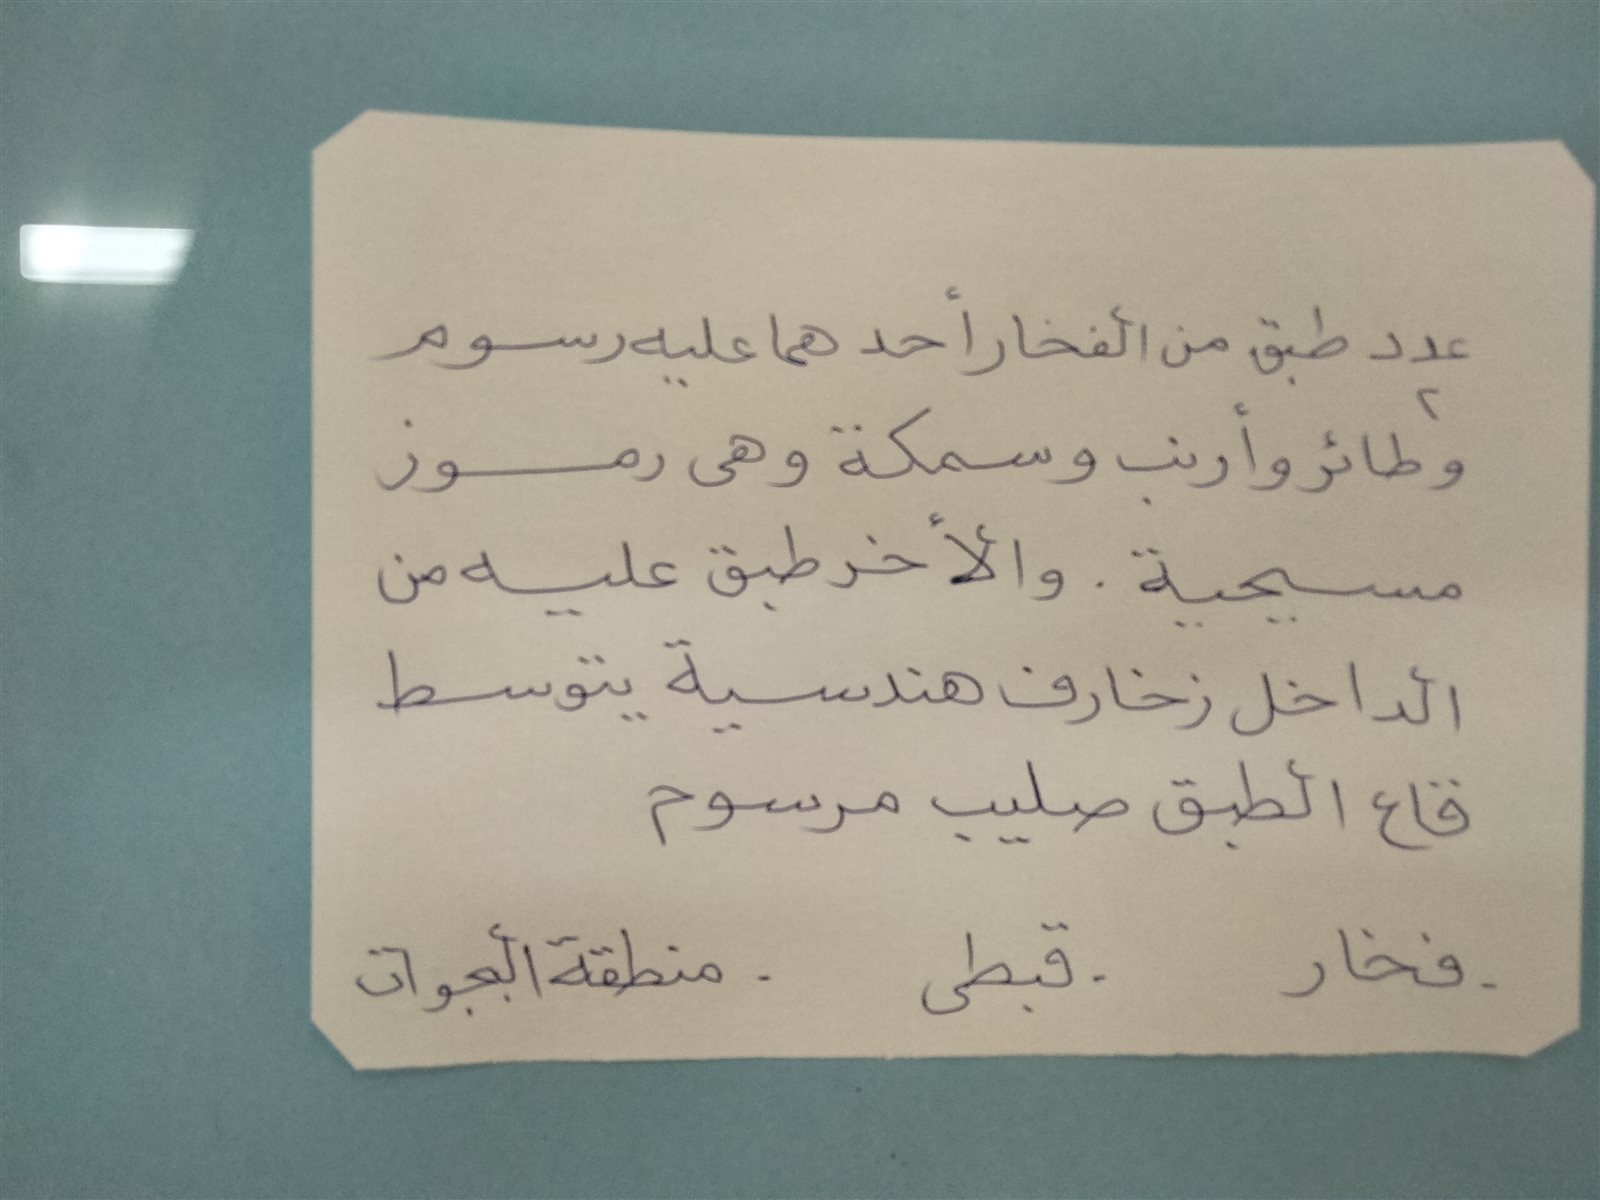 عدد ٢ طبق من الفخار أحدهما عليه رسوم
وطائر وأرنب وسمكة وهى رموز
مسيحية . والأخر طبق عليه من
الداخل زخارف هندسية يتوسط
قاع الطبق صليب مرسوم
- فخار - قبطى - منطقة البجوات